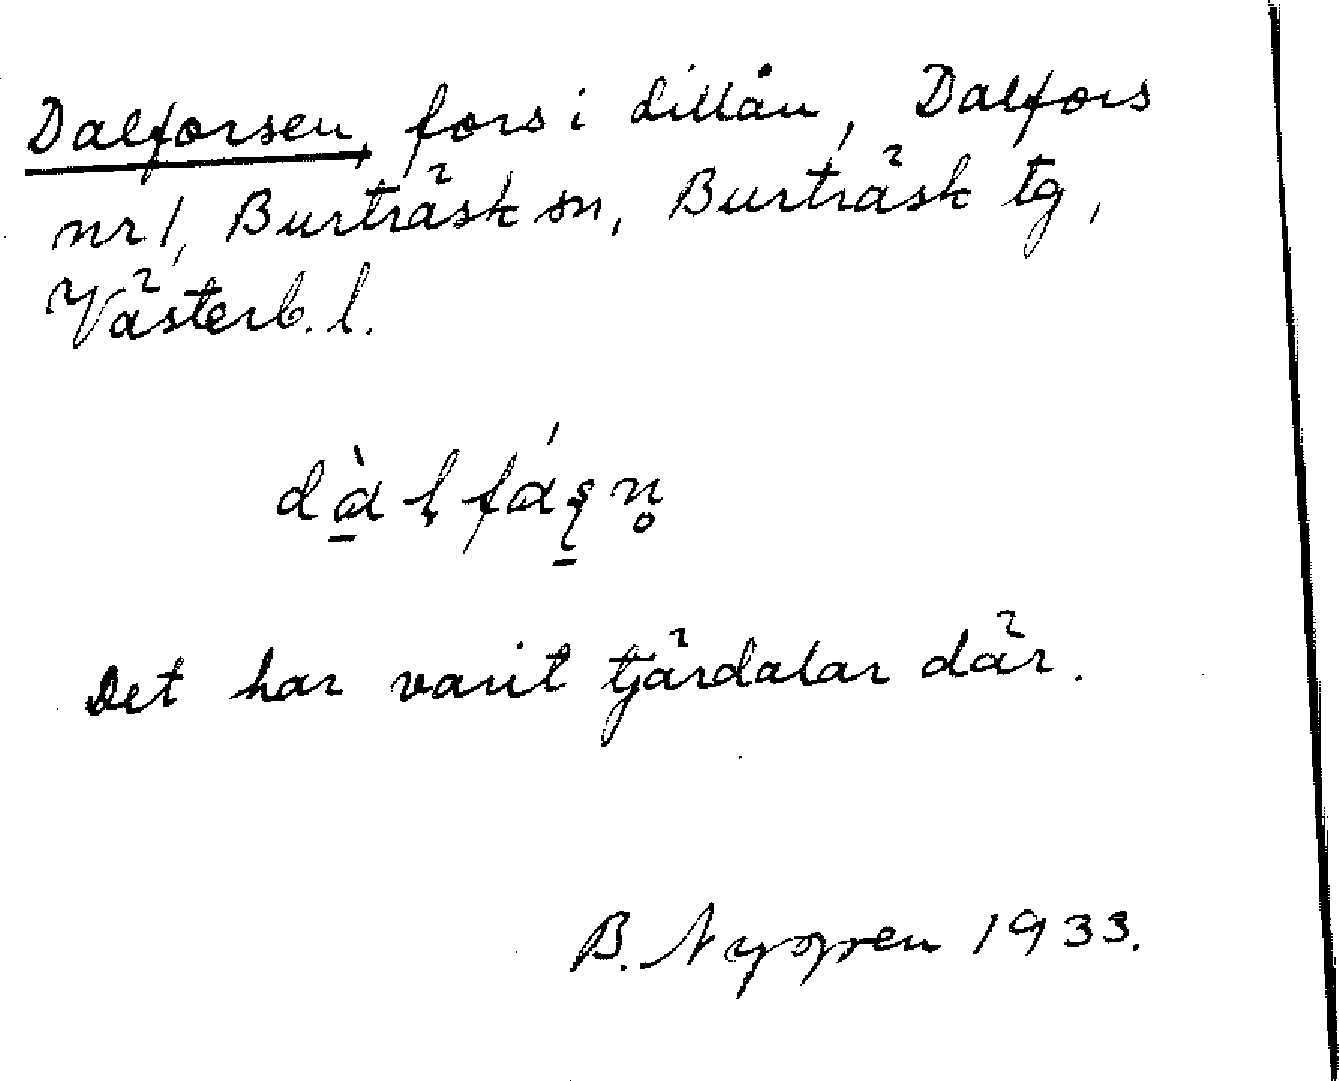 Dalforsen, fors i Lillån, Dalfors
nr 1, Burträsk sn, Burträsk tg,
Västerb. l.
Det har varit tjärdalar där.
B. Nygren 1933.